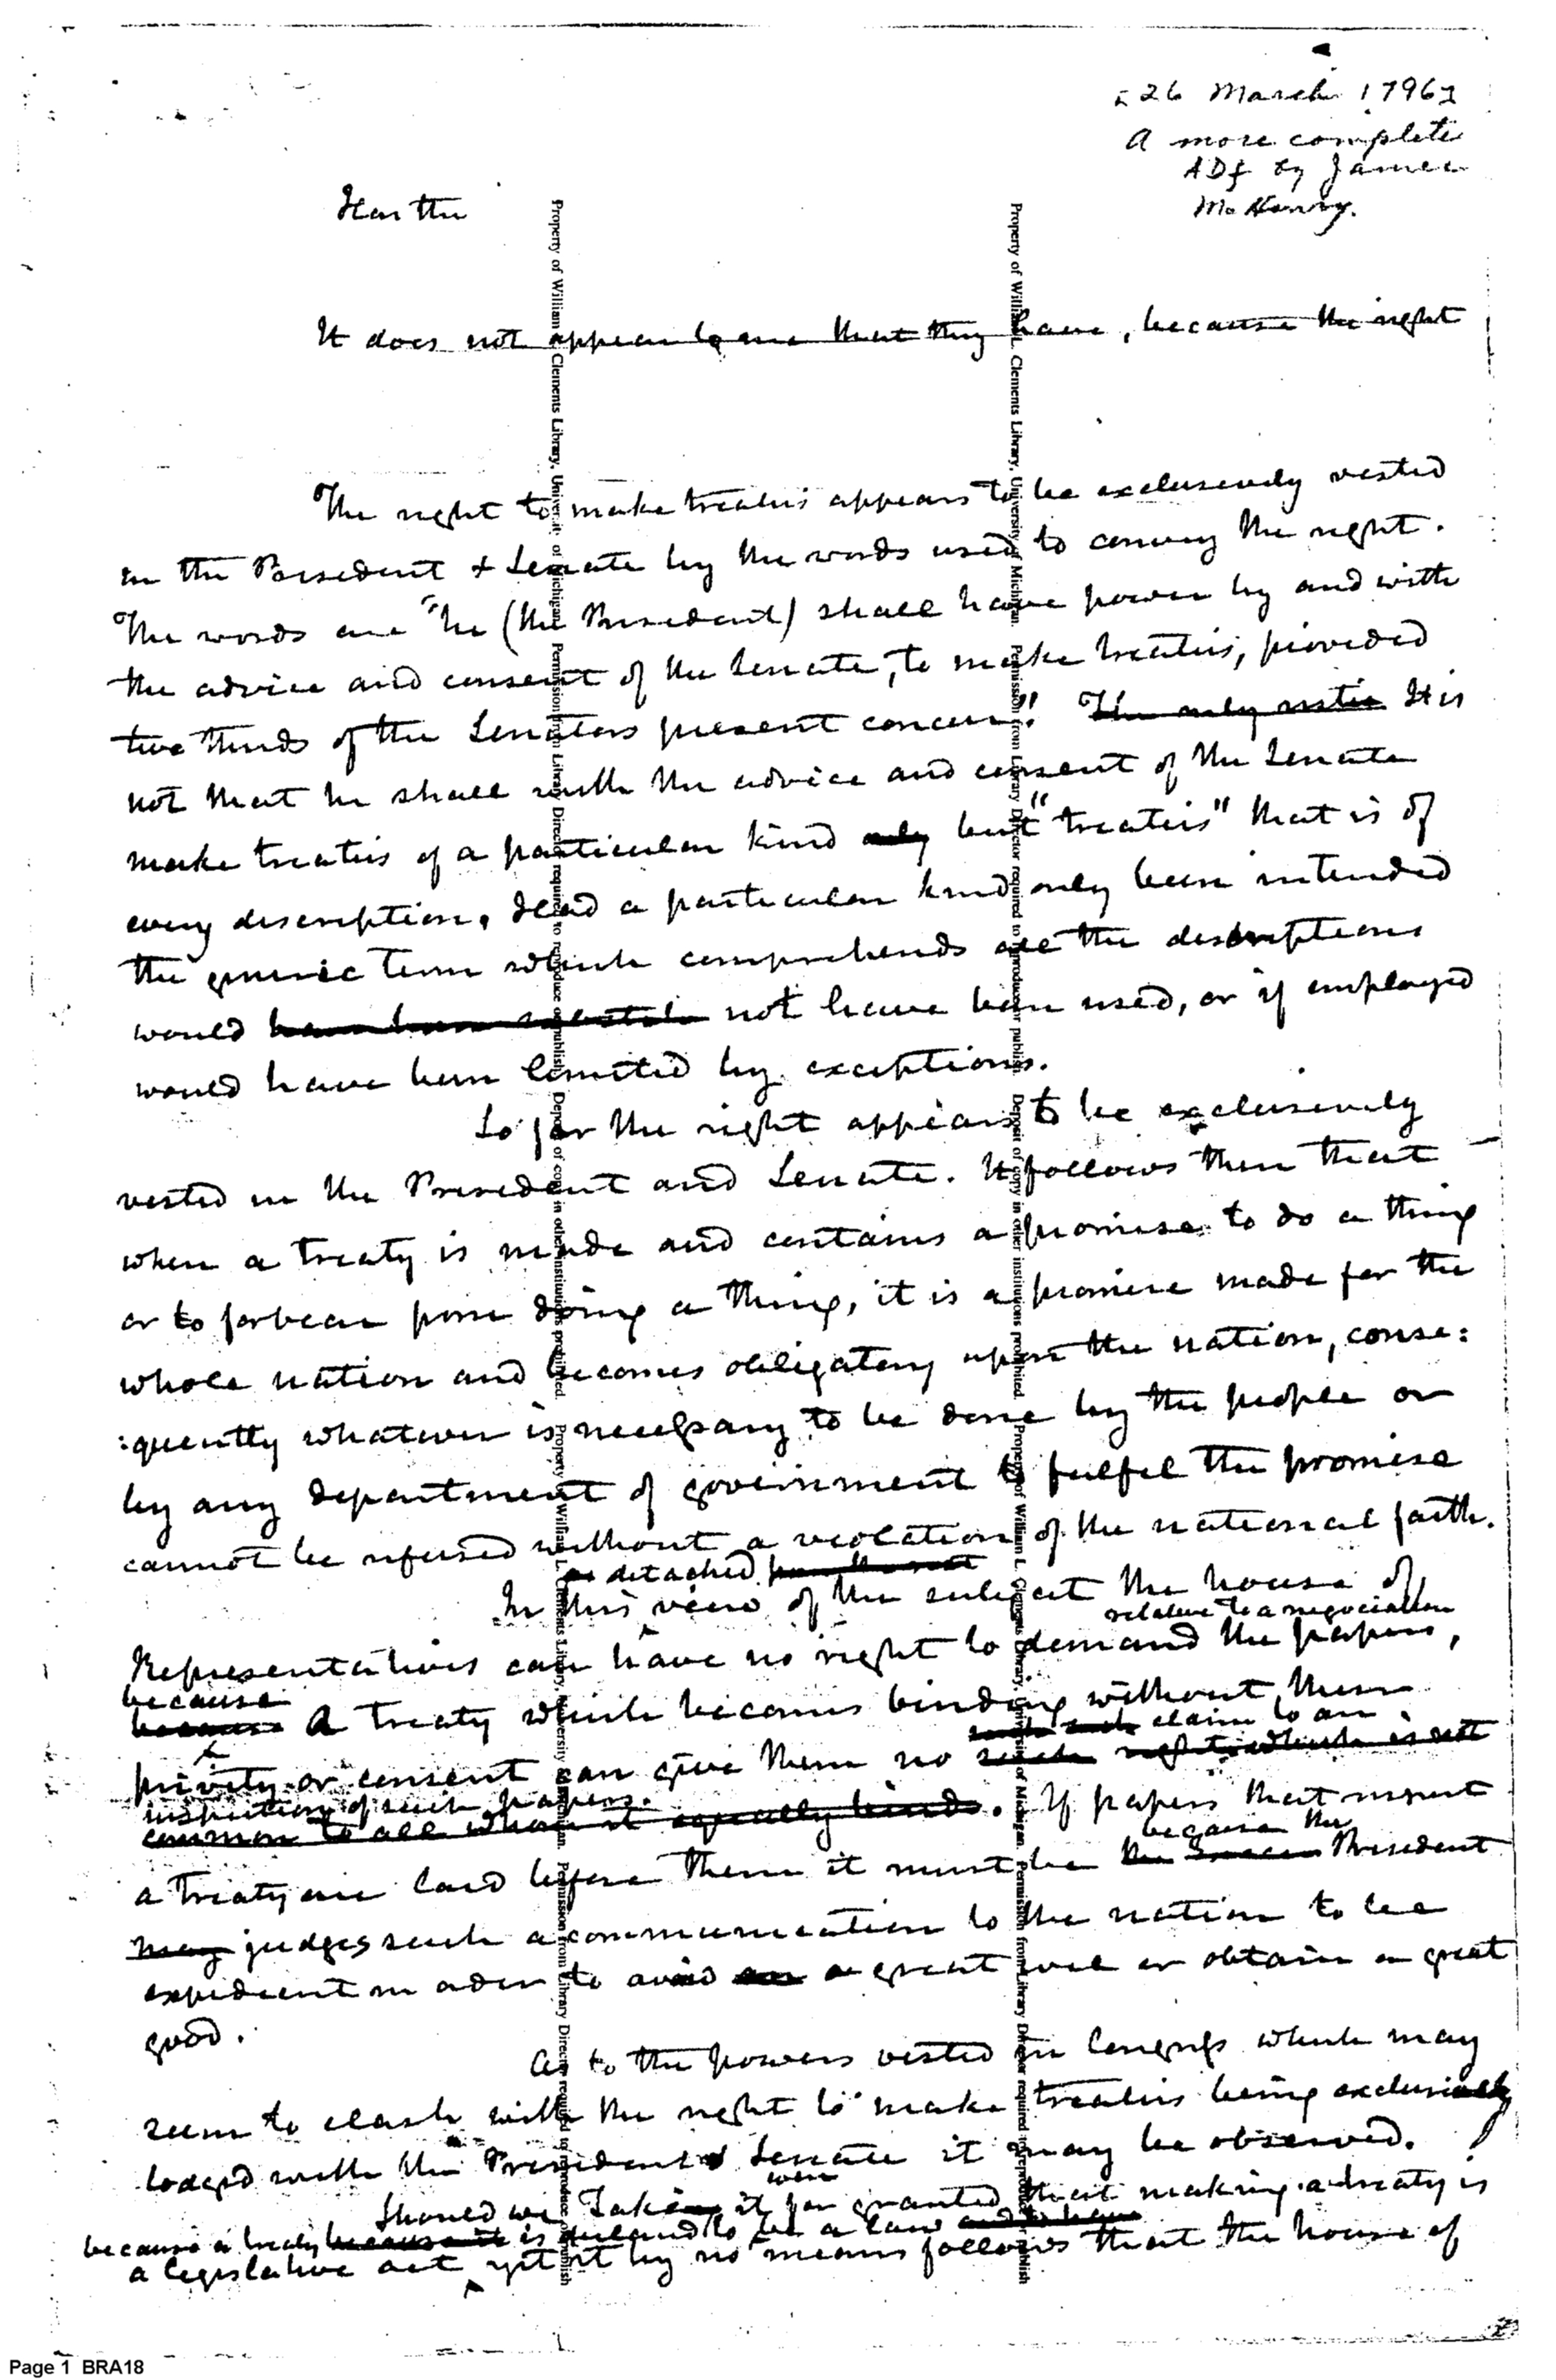 [26 March 1796]
A more complete
ADf by James
McHenry.
Has the
It does not appear to me that they have, because the right
The right to make treaties appears to be exclusively vested
in the President & Senate by the words used to convey the right.
The words are "he (the President) shall have power by and with
the advice and consent of the Senate, to make treaties, provided
two thirds of the Senators present concur". The only It is
not that he shall with the advice and consent of the Senate
make treaties of a particular kind only but "treaties" that is of
every description. Had a particular kind only been intended
the generic term which comprehends all the descriptions
would have been not have been used, or if employed
would have been limited by exceptions.
So far the right appears to be exclusively
vested in the President and Senate. It follows then that
when a treaty is made and contains a promise to do a thing
or to forbear from doing a thing, it is a promise made for the
whole nation and becomes obligatory upon the nation, conse:
:quently whatever is necessary to be done by the people or
by any department of government to fulfel the promise
cannot be refused without a violation of the national faith.
or detached from the rest
In this view of the subject the house of
relative to a negociation
Representatives can have no right to demand the papers,
because
because A treaty which becomes binding without their
such claim to an
privity or consent can give them no such right which is not
inspection of such papers.
common to all whom it equally binds. If papers that respect
because the
a Treaty are laid before them it must be the President
may judges such a communication to the nation to be
expedient in order to avoid an a great evil or obtain a great
good.
As to the powers vested in Congress which may
seem to clash with the right to make treaties being exclusively
lodged with the President & Senate it may be observed.
even
Should we Taking it for granted that making a treaty is
because a treaty because it is declared to be a law and to have
a legislative act yet it by no means follows that the house of
Property of William L. Clements Library, University of Michigan. Permission from Library Director required to reproduce or publish. Deposit of copy in other institutions prohibited. Property of William L. Clements Library, University of Michigan. Permission from Library Director required to reproduce or publish
Property of William L. Clements Library, University of Michigan. Permission from Library Director required to reproduce or publish. Deposit of copy in other institutions prohibited. Property of William L. Clements Library, University of Michigan. Permission from Library Director required to reproduce or publish
Page 1 BRA18